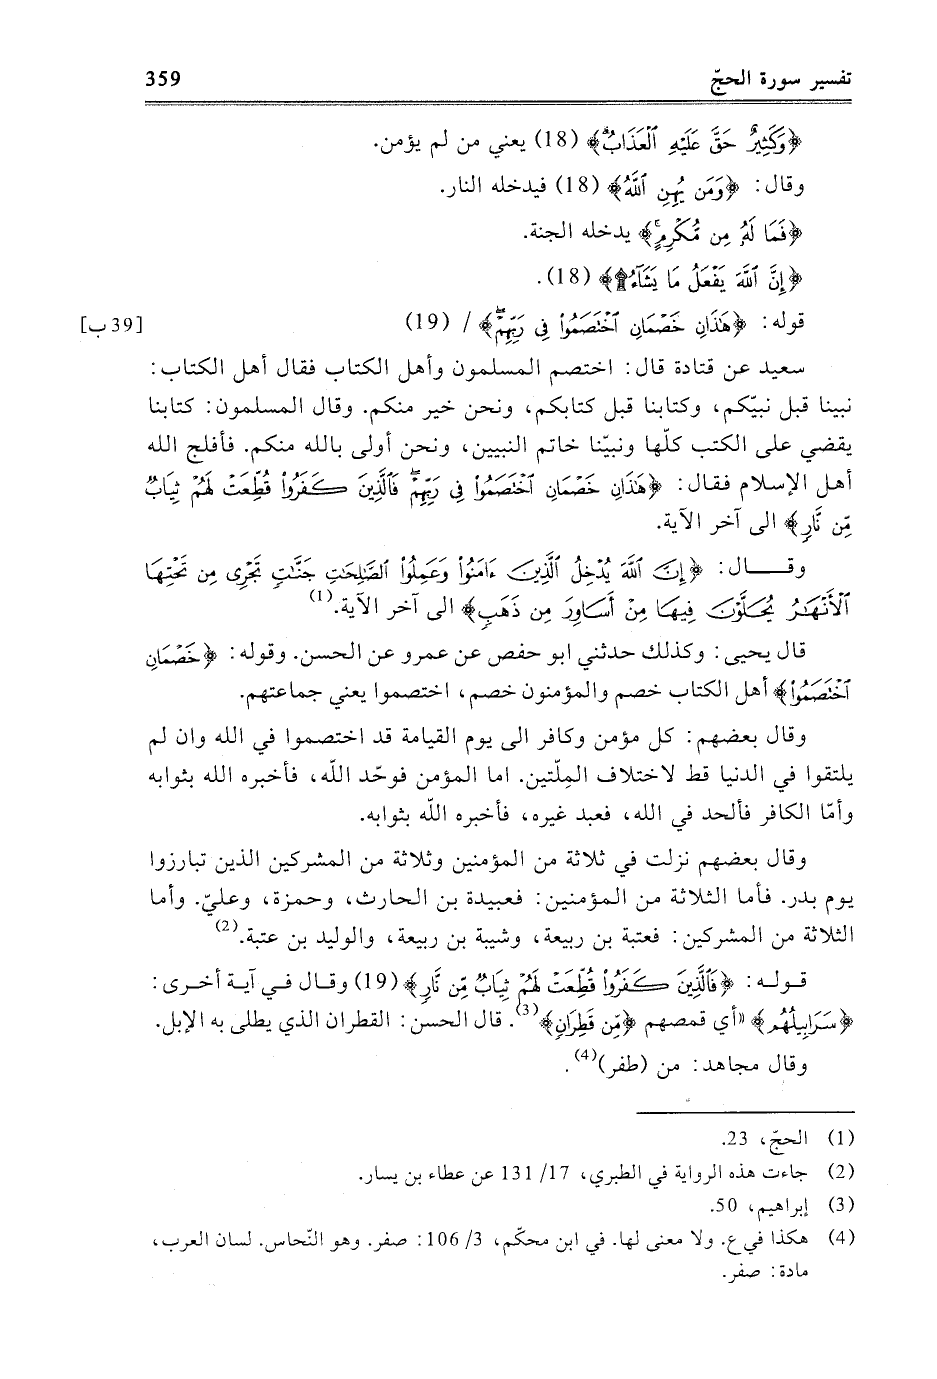 تفسير سورة الحجّ 359
﴿وَكَثِيرٌ حَقَّ عَلَيْهِ ٱلْعَذَابُ﴾ (18) يعني من لم يؤمن.
وقال: ﴿وَمَن يُهِنِ ٱللَّهُ﴾ (18) فيدخله النار.
﴿فَمَا لَهُۥ مِن مُّكْرِمٍ﴾ يدخله الجنة.
﴿إِنَّ ٱللَّهَ يَفْعَلُ مَا يَشَآءُ﴾ (18).
قوله: ﴿هَٰذَانِ خَصْمَانِ ٱخْتَصَمُوا۟ فِى رَبِّهِمْ﴾ / (19) [39ب]
سعيد عن قتادة قال: اختصم المسلمون وأهل الكتاب فقال أهل الكتاب:
نبينا قبل نبيّكم، وكتابنا قبل كتابكم، ونحن خير منكم. وقال المسلمون: كتابنا
يقضي على الكتب كلّها ونبيّنا خاتم النبيين، ونحن أولى بالله منكم. فأفلج الله
أهل الإسلام فقال: ﴿هَٰذَانِ خَصْمَانِ ٱخْتَصَمُوا۟ فِى رَبِّهِمْ فَٱلَّذِينَ كَفَرُوا۟ قُطِّعَتْ لَهُمْ ثِيَابٌ
مِّن نَّارٍ﴾ الى آخر الآية.
وقال: ﴿إِنَّ ٱللَّهَ يُدْخِلُ ٱلَّذِينَ ءَامَنُوا۟ وَعَمِلُوا۟ ٱلصَّٰلِحَٰتِ جَنَّٰتٍ تَجْرِى مِن تَحْتِهَا
ٱلْأَنْهَٰرُ يُحَلَّوْنَ فِيهَا مِنْ أَسَاوِرَ مِن ذَهَبٍ﴾ الى آخر الآية.(1)
قال يحيى: وكذلك حدثني ابو حفص عن عمرو عن الحسن. وقوله: ﴿خَصْمَانِ
ٱخْتَصَمُوا۟﴾ أهل الكتاب خصم والمؤمنون خصم، اختصموا يعني جماعتهم.
وقال بعضهم: كل مؤمن وكافر الى يوم القيامة قد اختصموا في الله وان لم
يلتقوا في الدنيا قط لاختلاف المِلّتين. اما المؤمن فوحّد اللّه، فأخبره الله بثوابه
وأمّا الكافر فألحد في الله، فعبد غيره، فأخبره اللّه بثوابه.
وقال بعضهم نزلت في ثلاثة من المؤمنين وثلاثة من المشركين الذين تبارزوا
يوم بدر. فأما الثلاثة من المؤمنين: فعبيدة بن الحارث، وحمزة، وعليّ. وأما
الثلاثة من المشركين: فعتبة بن ربيعة، وشيبة بن ربيعة، والوليد بن عتبة.(2)
قوله: ﴿فَٱلَّذِينَ كَفَرُوا۟ قُطِّعَتْ لَهُمْ ثِيَابٌ مِّن نَّارٍ﴾ (19) وقال في آية أخرى:
﴿سَرَابِيلُهُم﴾ «أي قمصهم ﴿مِّن قَطِرَانٍ﴾(3). قال الحسن: القطران الذي يطلى به الإبل.
وقال مجاهد: من (طفر)(4).
(1) الحجّ، 23.
(2) جاءت هذه الرواية في الطبري، 17/ 131 عن عطاء بن يسار.
(3) إبراهيم، 50.
(4) هكذا في ع. ولا معنى لها. في ابن محكّم، 3/ 106: صفر. وهو النّحاس. لسان العرب،
مادة: صفر.